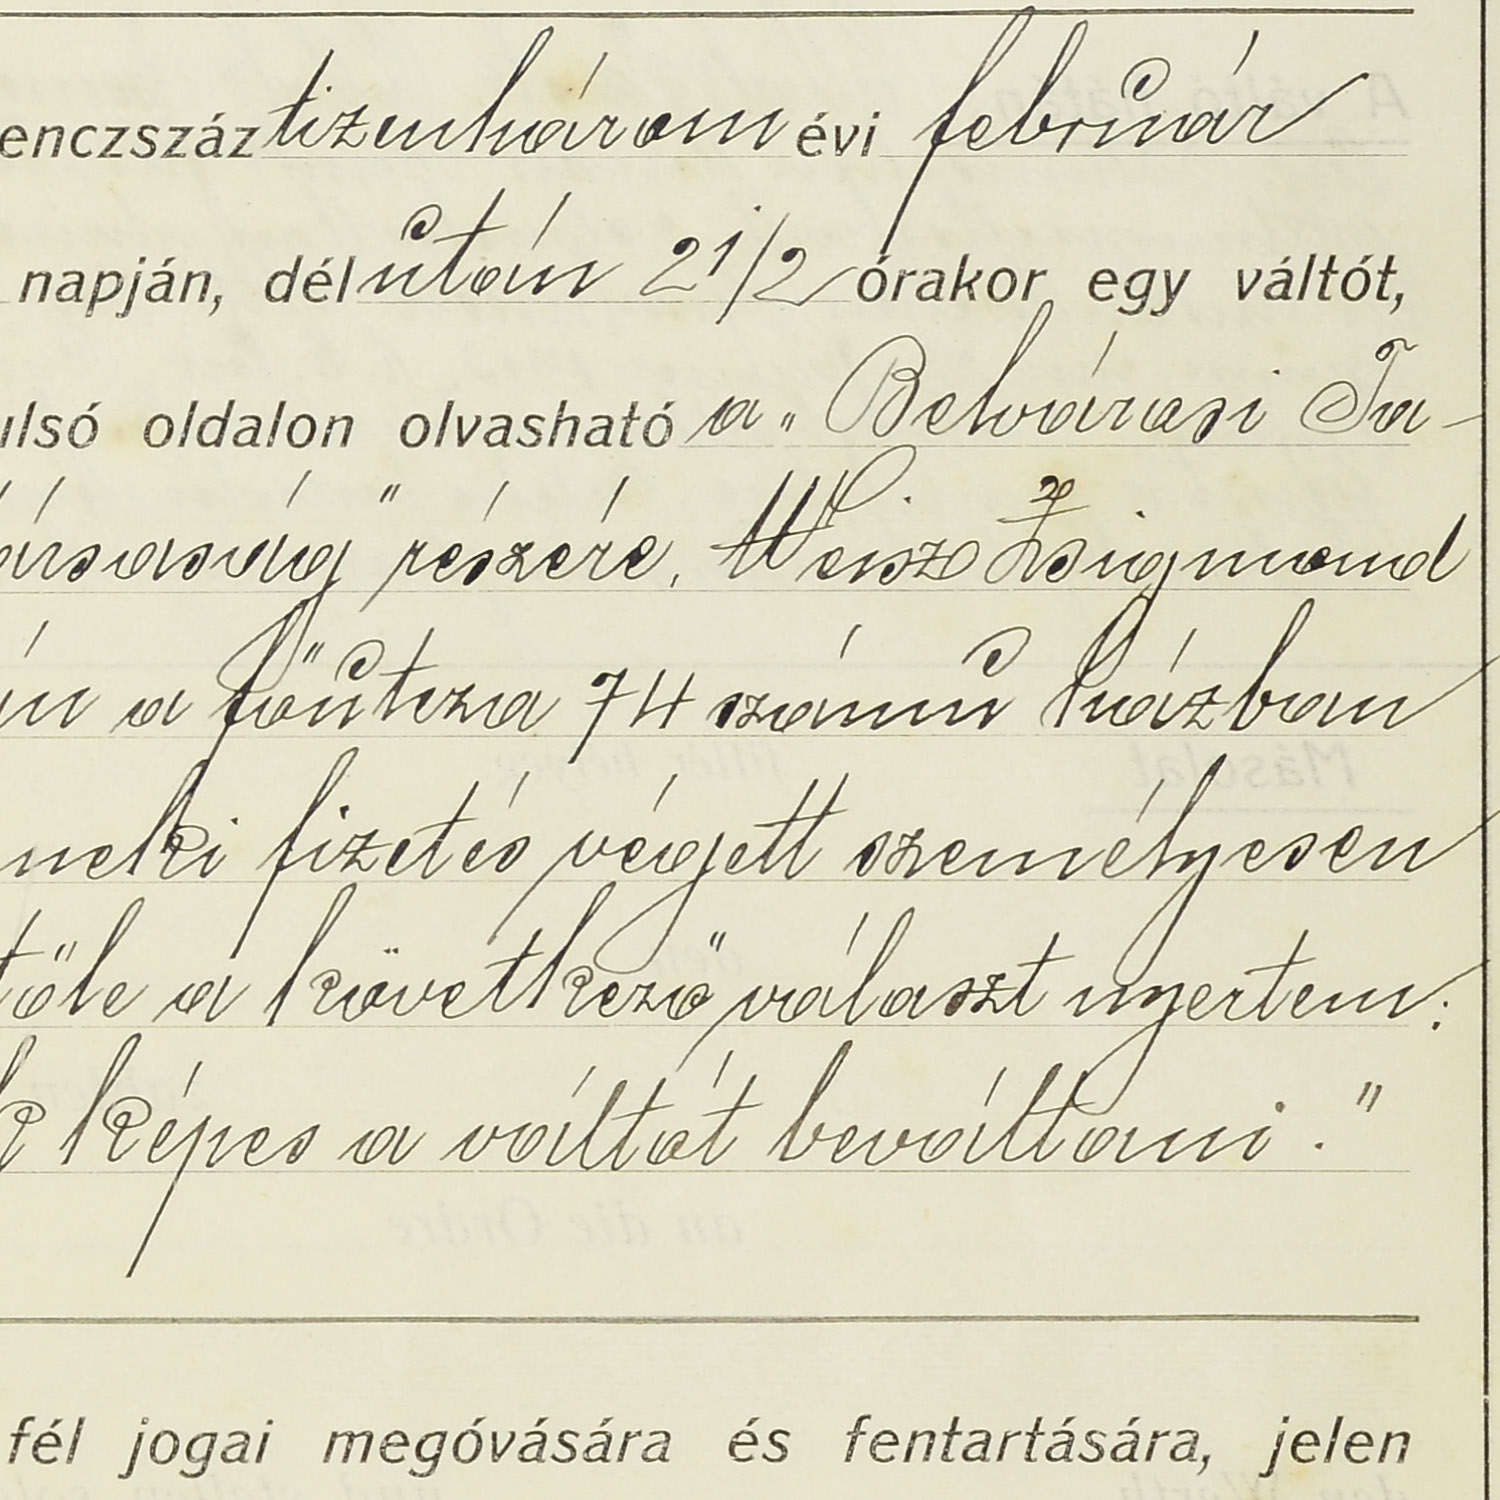 enczszáz tizenhárom évi február
napján, délután 2 1/2 órakor egy váltót,
ulsó oldalon olvasható a „Belvárosi Ta-
társaság" részére, Weisz Zsigmond
án a főutcza 74 számú házban
neki fizetés végett személyesen
tőle a következő választ nyertem:
k képes a váltót beváltani."
fél jogai megóvására és fentartására, jelen